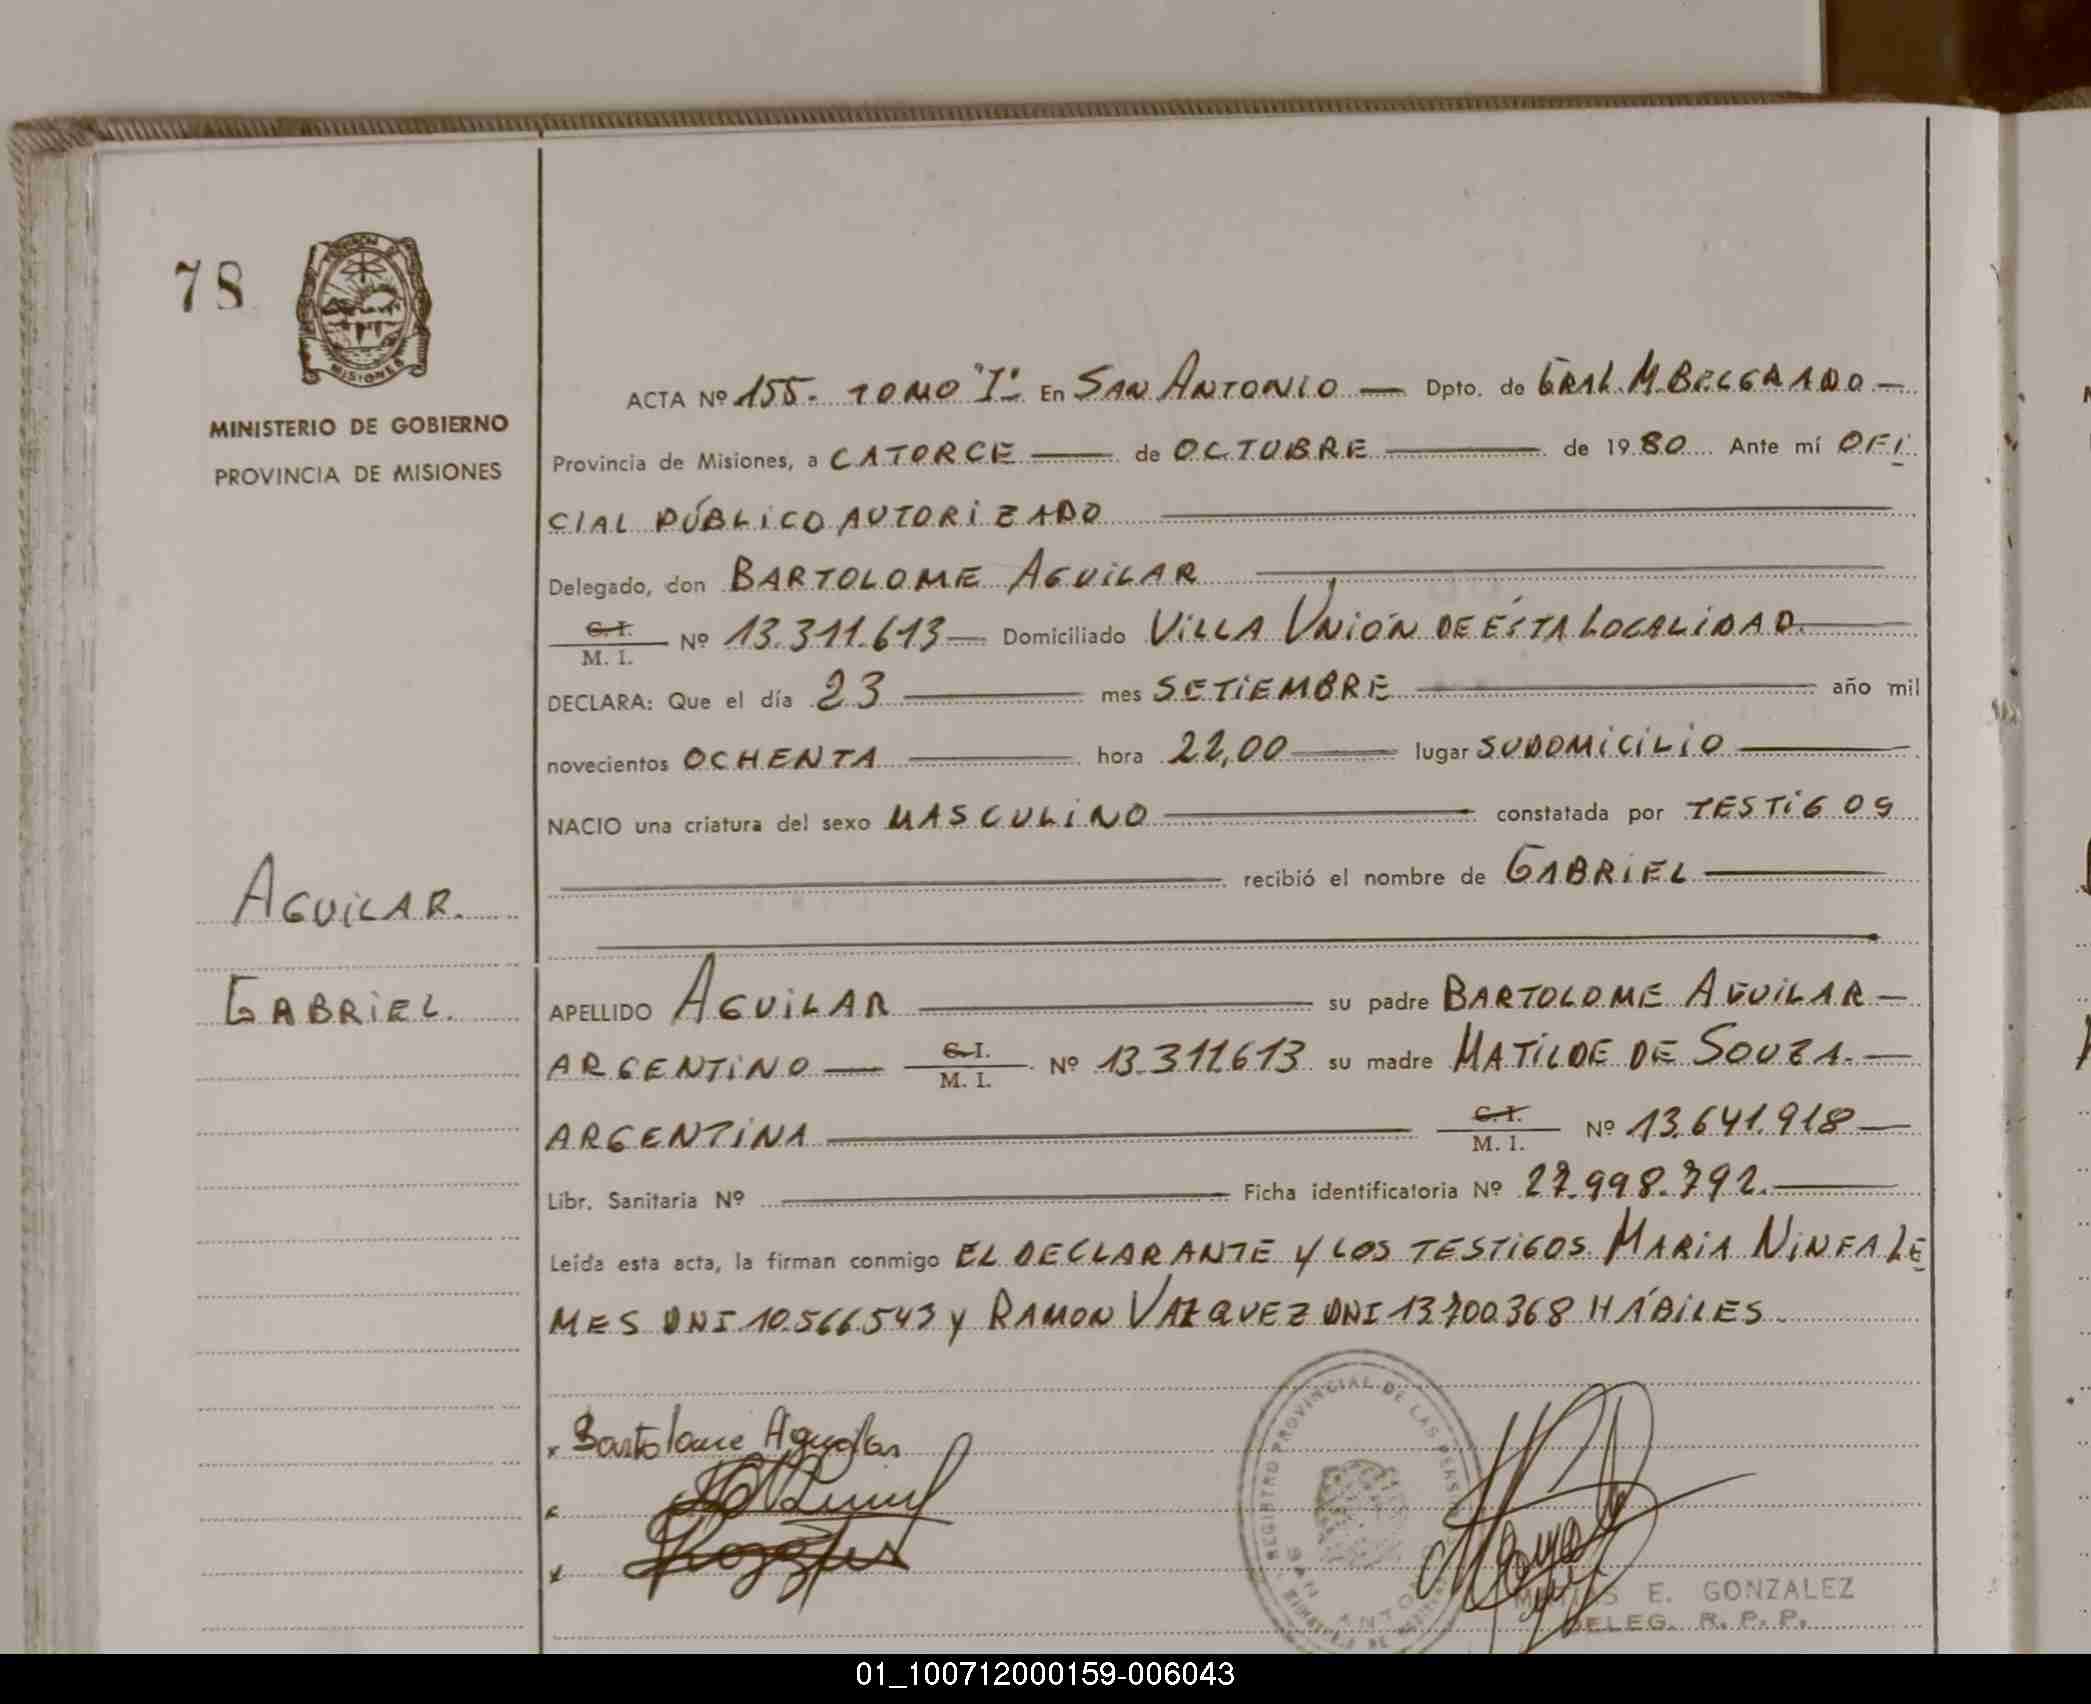 78
MISIONES
MINISTERIO DE GOBIERNO
PROVINCIA DE MISIONES
AGUILAR.
GABRIEL.
ACTA Nº 155. TOMO "I" En SAN ANTONIO — Dpto. de GRAL. M. BELGRANO —
Provincia de Misiones, a CATORCE — de OCTUBRE — de 1980 Ante mí OFI
CIAL PÚBLICO AUTORIZADO —
Delegado, don BARTOLOME AGUILAR —
C. I. / M. I. Nº 13.311.613 — Domiciliado VILLA UNIÓN DE ÉSTA LOCALIDAD. —
DECLARA: Que el día 23 — mes SETIEMBRE — año mil
novecientos OCHENTA — hora 22,00 — lugar SU DOMICILIO —
NACIO una criatura del sexo MASCULINO — constatada por TESTIGOS
— recibió el nombre de GABRIEL —
APELLIDO AGUILAR — su padre BARTOLOME AGUILAR —
ARGENTINO — C. I. / M. I. Nº 13.311.613 su madre MATILDE DE SOUZA. —
ARGENTINA — C. I. / M. I. Nº 13.641.918 —
Libr. Sanitaria Nº — Ficha identificatoria Nº 27.998.792. —
Leída esta acta, la firman conmigo EL DECLARANTE Y LOS TESTIGOS MARIA NINFA LE
MES DNI 10.566.543 y RAMON VAZQUEZ DNI 13.700.368 HÁBILES.
x Bartolome Aguilar
REGISTRO PROVINCIAL DE LAS PERSONAS
SAN ANTONIO
E. GONZALEZ
DELEG. R. P. P.
01_100712000159-006043